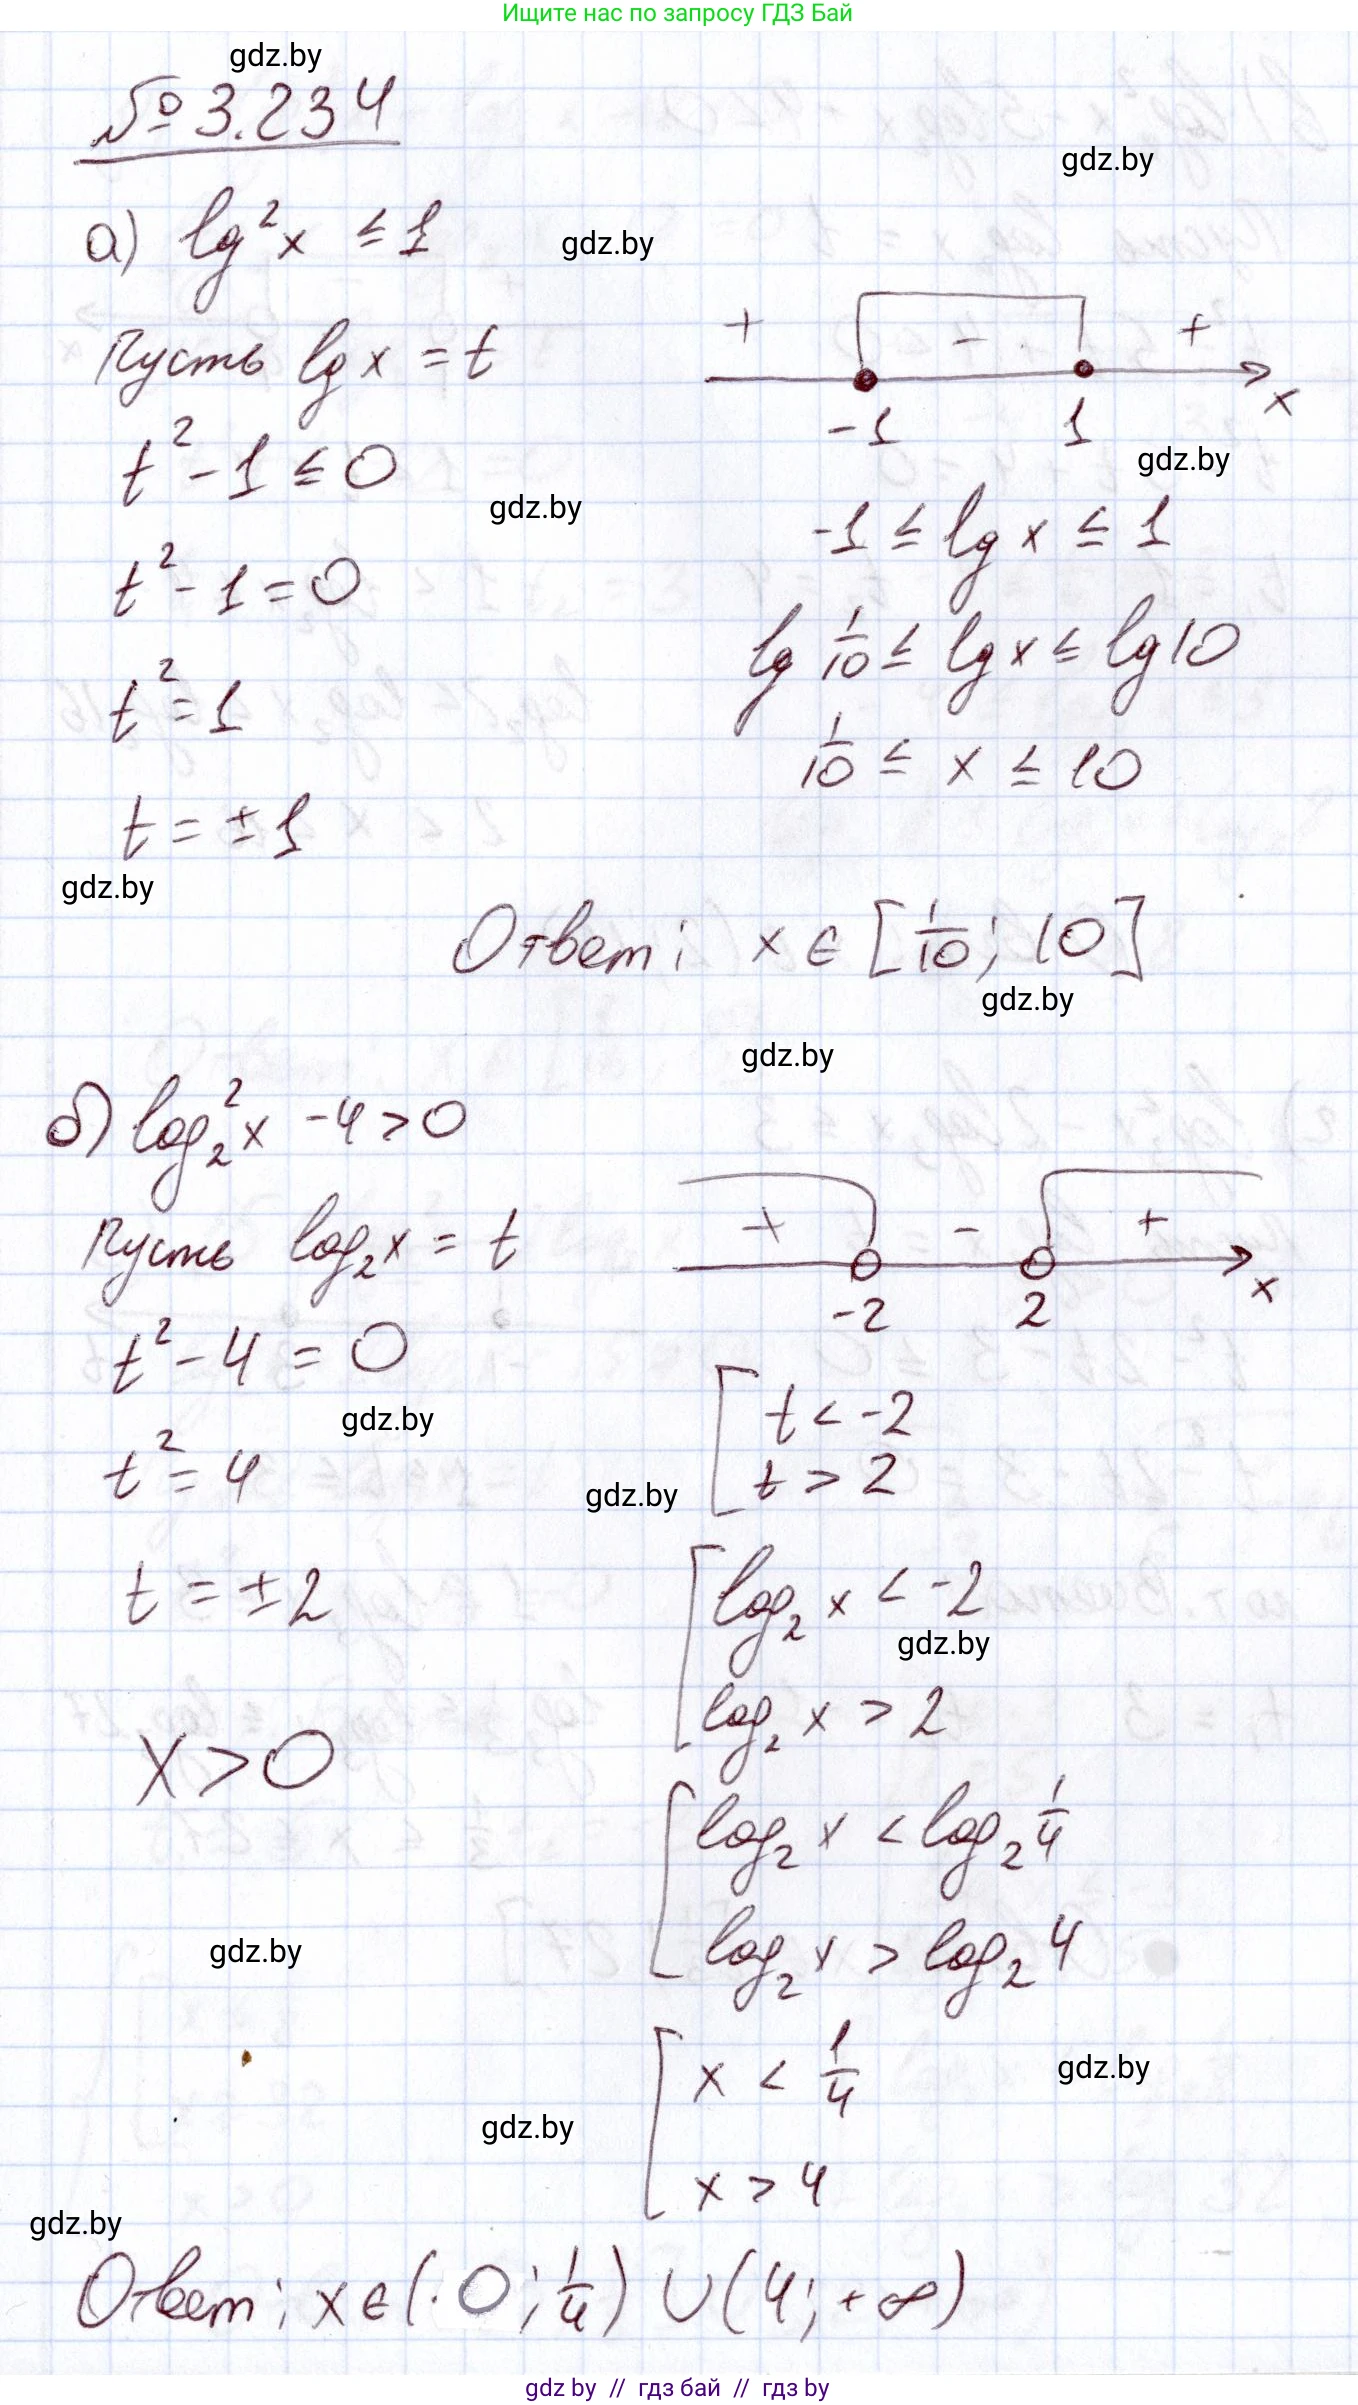 Ищите нас по запросу ГДЗ Бай
gdz.by
№ 3.234
gdz.by
а) lg²x ≤ 1
gdz.by
Пусть lg x = t
+ - +
-1 1 x
t² - 1 ≤ 0
gdz.by
gdz.by
-1 ≤ lg x ≤ 1
t² - 1 = 0
lg 1/10 ≤ lg x ≤ lg 10
t² = 1
1/10 ≤ x ≤ 10
t = ± 1
gdz.by
Ответ: x ∈ [1/10; 10]
gdz.by
gdz.by
б) log₂²x - 4 > 0
Пусть log₂x = t
+ - +
-2 2 x
t² - 4 = 0
gdz.by
[ t < -2
t > 2
t² = 4
gdz.by
t = ± 2
[ log₂ x < -2
gdz.by
log₂ x > 2
x > 0
[ log₂ x < log₂ 1/4
log₂ x > log₂ 4
gdz.by
[ x < 1/4
gdz.by
gdz.by
x > 4
gdz.by
Ответ: x ∈ (0; 1/4) ∪ (4; +∞)
gdz by // гдз бай // гдз by